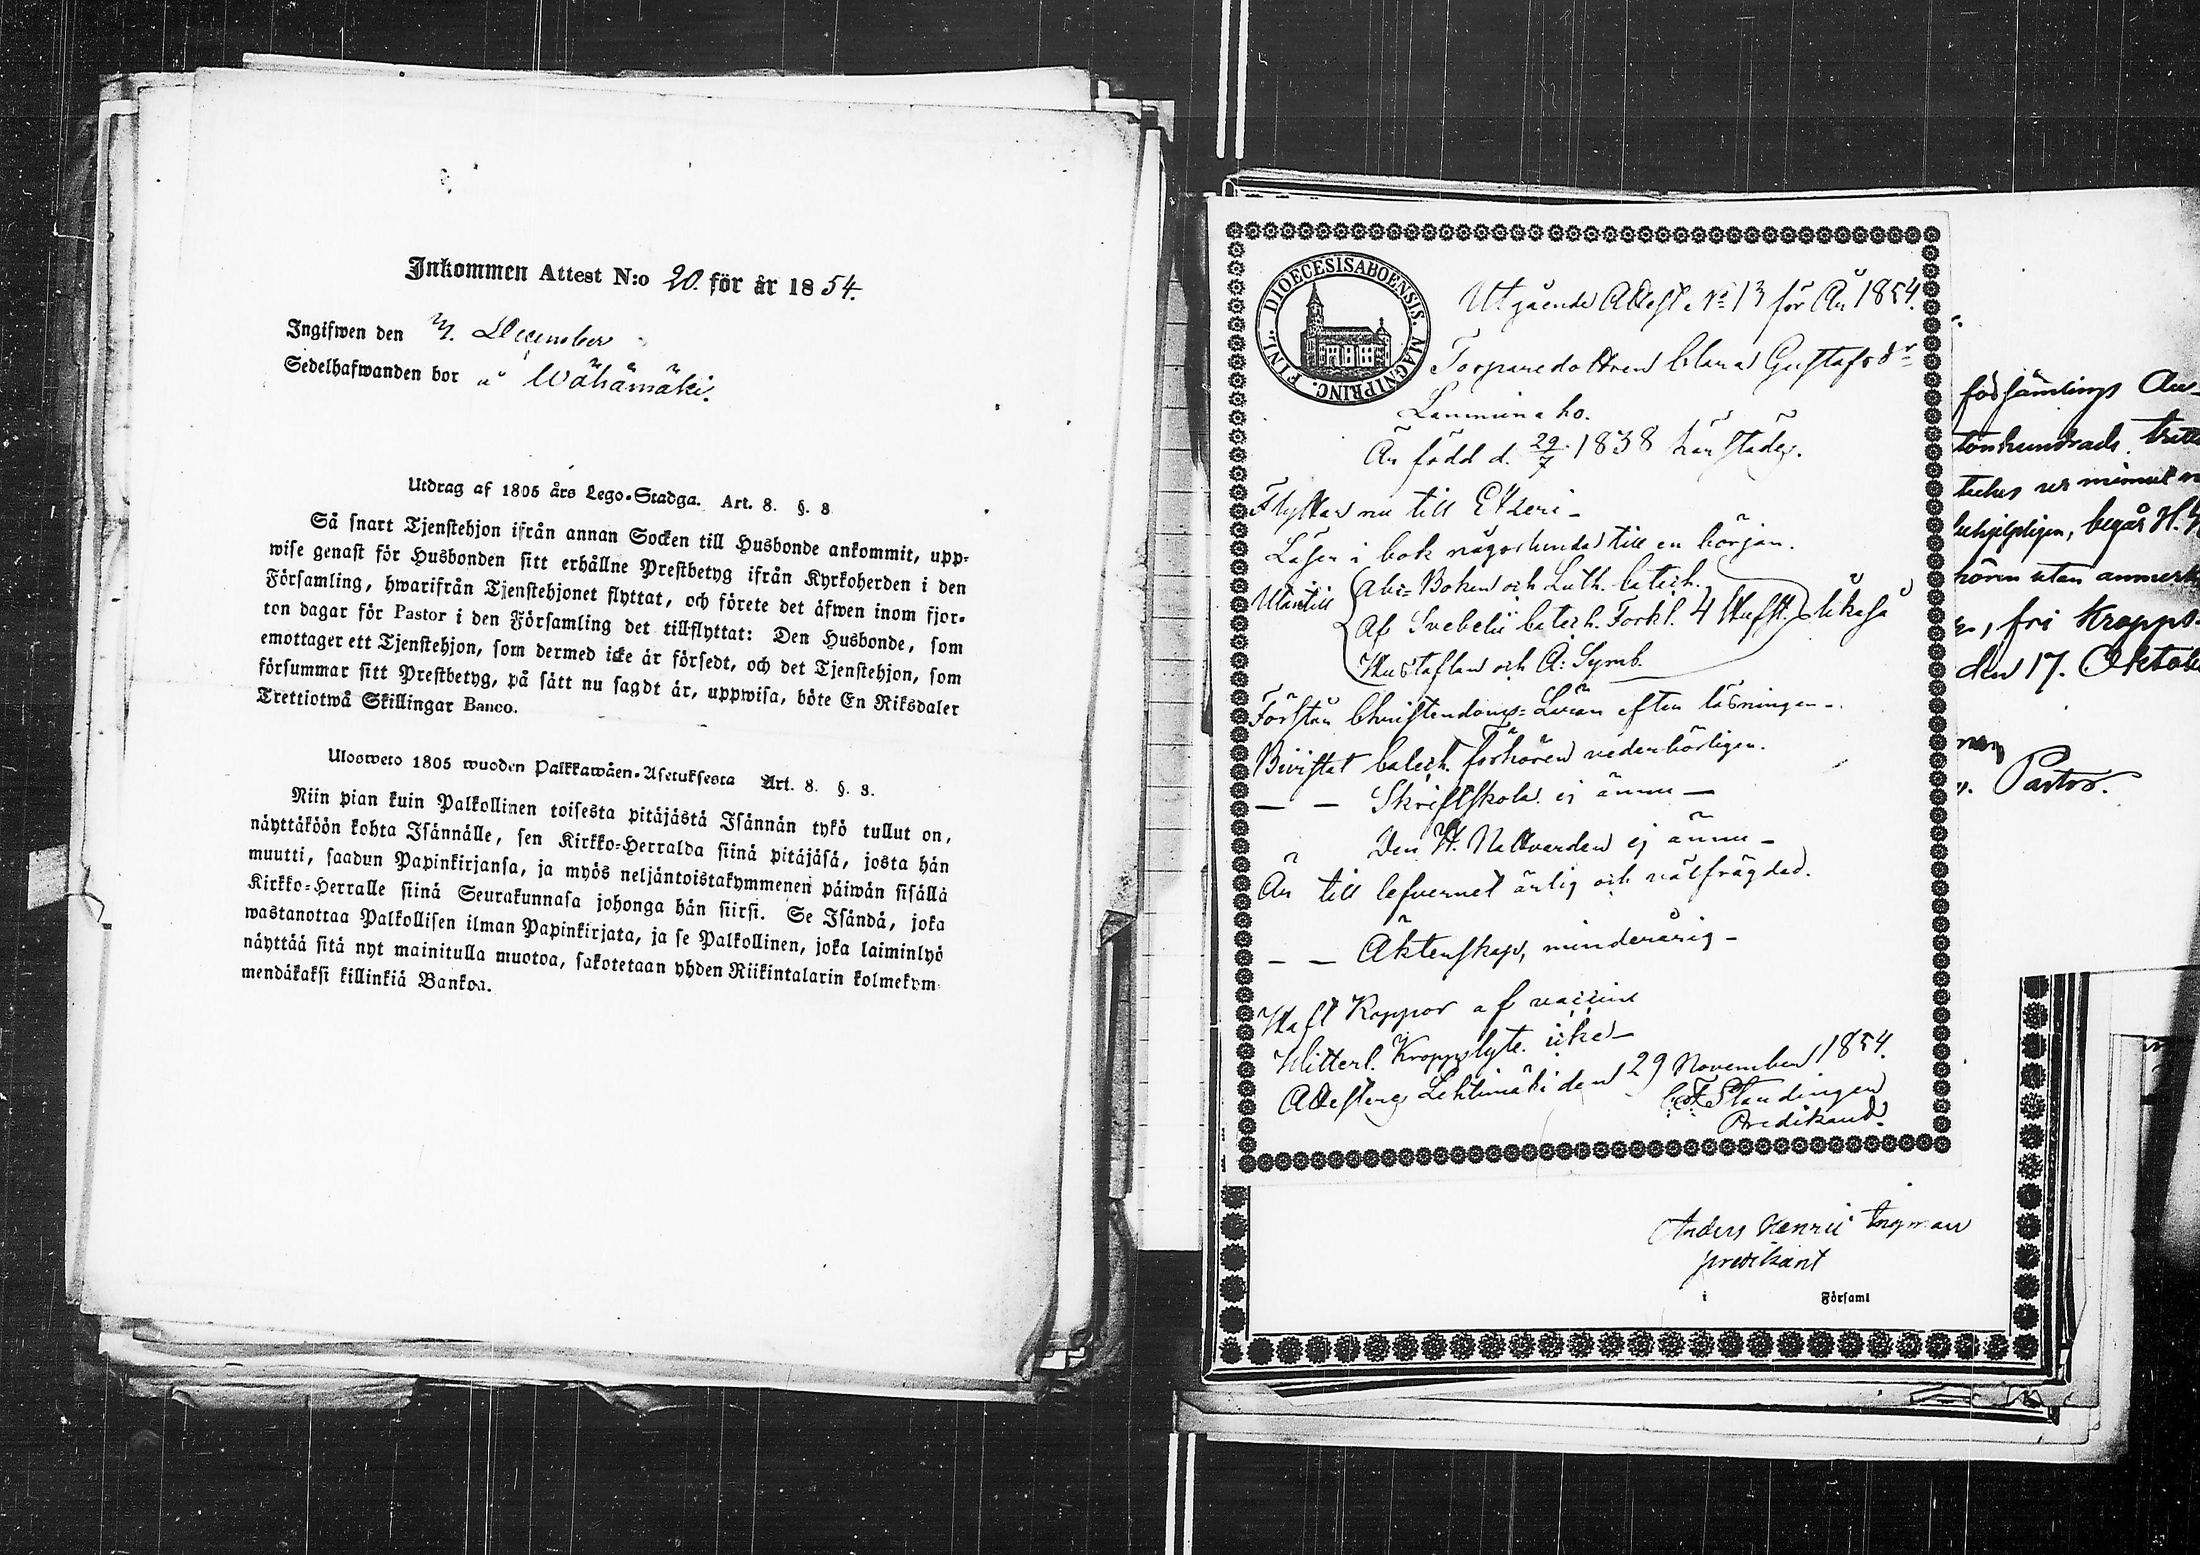 Inkommen Attest N:o 20. för år 1854.
Ingifwen den December
Sedelhafwanden bor å Wähämäki.
Utdrag af 1805 års Lego-Stadga. Art. 8. §. 8
Så snart Tjenstehjon ifrån annan Socken till Husbonde ankommit, upp-
wise genast för Husbonden sitt erhållne Prestbetyg ifrån Kyrkoherden i den
Församling, hwarifrån Tjenstehjonet flyttat, och förete det äfwen inom fjor-
ton dagar för Pastor i den Församling det tillflyttat: Den Husbonde, som
emottager ett Tjenstehjon, som dermed icke är försedt, och det Tjenstehjon, som
försummar sitt Prestbetyg, på sätt nu sagdt är, uppwisa, böte En Riksdaler
Trettiotwå Skillingar Banco.
Ulosweto 1805 wuoden Palkkawäen-Asetuksesta Art. 8. §. 8.
Niin pian kuin Palkollinen toisesta pitäjästä Isännän tykö tullut on,
näyttäköön kohta Isännälle, sen Kirkko-Herralda siinä pitäjäsä, josta hän
muutti, saadun Papinkirjansa, ja myös neljäntoistakymmenen päiwän sisällä
Kirkko-Herralle siinä Seurakunnasa johonga hän siirsi. Se Isändä, joka
wastanottaa Palkollisen ilman Papinkirjata, ja se Palkollinen, joka laiminlyö
näyttää sitä nyt mainitulla muotoa, sakotetaan yhden Riikintalarin kolmekym-
mendäkaksi killinkiä Bankoa.
DIOECESIS ABOENSIS. MAGNI PRINC. FINL.
Utgående Attest No 13 för År 1854.
Torparedottren Clara Gustafsdr
Lamminaho.
Är född d. 29/7 1838 härstädes.
Flyttar nu till Etseri-
Läser i bok någorlunda till en början.
Utantill Abc-Boken och Luth. Catech.
Af Svebelii Catech. Förkl. 4 Hufst. likaså
Hustaflan och A: Symb.
Förstår Christendoms-Läran efter läsningen-
Bivistat Catech. förhören vederbörligen.
— — Skriftskola ej ännu —
Den H. Nattvarden ej ännu -
Är till lefvernet ärlig och välfrägdad.
— — Äktenskap, minderårig -
Haft Koppor af vaccine
Witterl. Kroppslyte icke-
Attesterar Lehtimäki den 29 November 1854.
Standinger
Predikant.
Anders Henric Ingman
predikant
i Församl
församlings
tonhundrade
begår H.
hören utan
fri Kropps-
den 17. Oktob
Pastor.